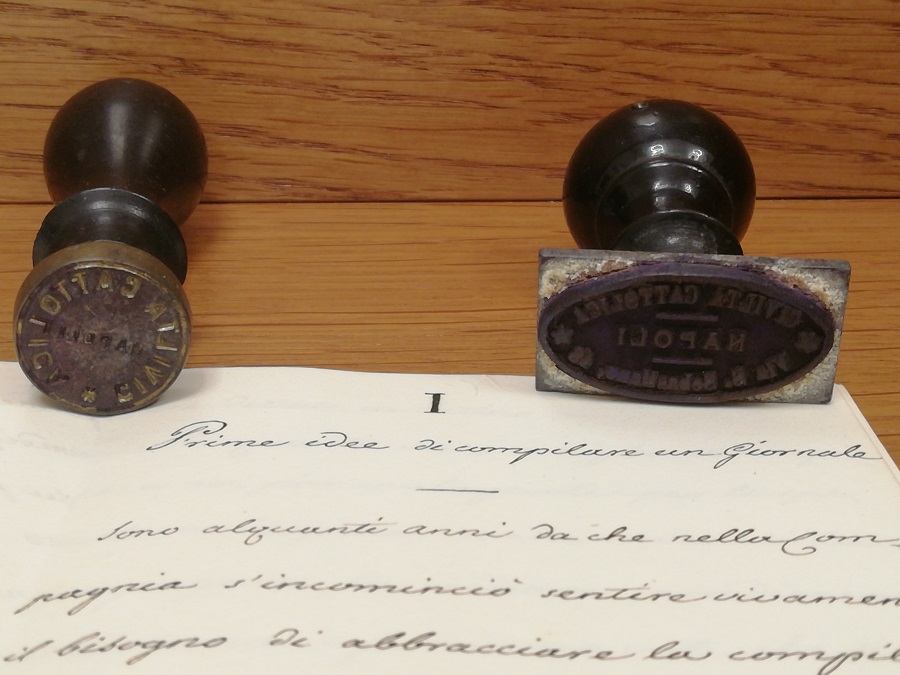 CIVILTÀ CATTOLICA
NAPOLI
CIVILTÀ CATTOLICA
NAPOLI
I
Prime idee di compilare un Giornale
Sono alquanti anni da che nella Com-
pagnia s'incominciò sentire vivamen
il bisogno di abbracciare la compil